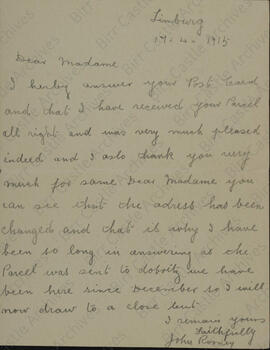 Limburg
17-4-1915
Dear Madame
I herby answer your Post Card
and that I have received your Parcel
all right and was very much pleased
indeed and I aslo thank you very
much for same Dear Madame you
can see that the adress has been
changed and that is why I have
been so long in answering as the
Parcell was sent to we have
been here since December so I will
now draw to a close but
I remain yours
Faithfully
John Rooney